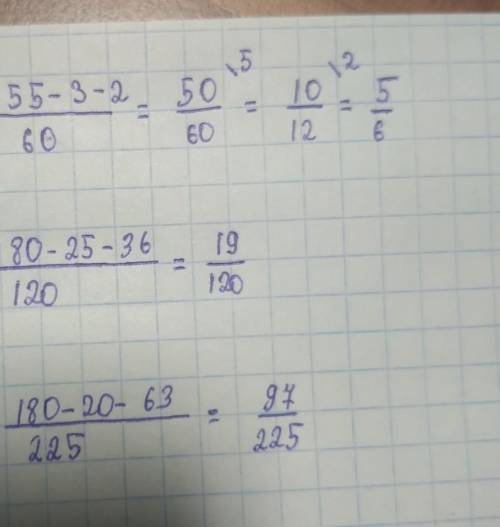 55-3-2/60 = 50/60 \5 = 10/12 \2 = 5/6
80-25-36/120 = 19/120
180-20-63/225 = 97/225